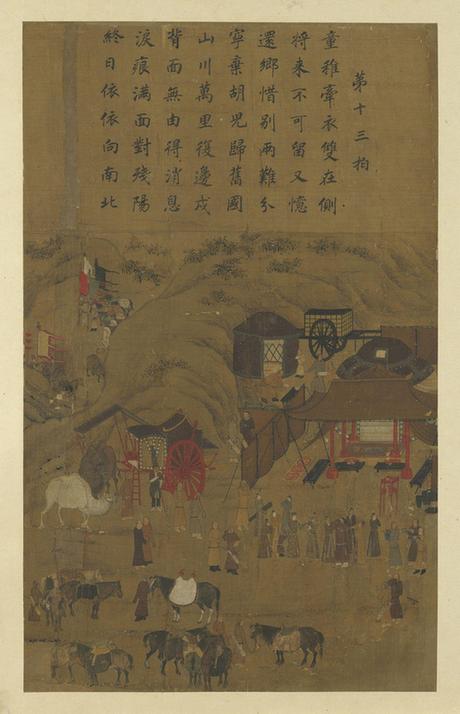 第十三拍
童稚牽衣雙在側
將来不可留又憶
還鄉惜别兩難分
寧棄胡兒歸舊國
山川萬里復邊戍
背面無由得消息
淚痕滿面對殘陽
終日依依向南北